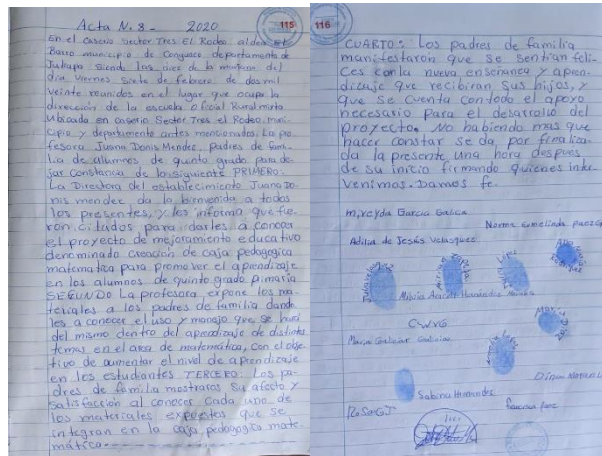 Acta No. 8 - 2020
115
En el caserio Sector Tres El Rodeo aldea El
Barro municipio de Conguaco departamento de
Jutiapa siendo las once de la mañana del
dia viernes siete de febrero de dos mil
veinte reunidos en el lugar que ocupa la
dirección de la escuela Oficial Rural mixta
Ubicada en caserio Sector Tres el Rodeo, muni-
cipio y departamento antes mencionados. La pro-
fesora Juana Donis Mendez, padres de fami-
lia de alumnos de quinto grado para de-
jar constancia de lo siguiente PRIMERO:
La Directora del establecimiento Juana Do-
nis mendez da la bienvenida a todos
los presentes, y les informa que fue-
ron citados para darles a conocer
el proyecto de mejoramiento educativo
denominado creación de caja pedagogica
matematica para promover el aprendizaje
en los alumnos de quinto grado primaria
SEGUNDO La profesora expone los ma-
teriales a los padres de familia dando
les a conocer el uso y manejo que se hará
del mismo dentro del aprendizaje de distintos
temas en el area de matemática, con el obje-
tivo de aumentar el nivel de aprendizaje
en los estudiantes TERCERO: Los pa-
dres de familia mostraron su afecto y
satisfacción al conocer cada uno de
los materiales expuestos que se
integran en la caja pedagogica mate-
mática.
116
CUARTO: Los padres de familia
manifestaron que se sentian feli-
ces con la nueva enseñanza y apren-
dizaje que recibiran sus hijos, y
que se cuenta con todo el apoyo
necesario para el desarrollo del
proyecto. No habiendo mas que
hacer constar se da por finaliza-
da la presente una hora despues
de su inicio firmando quienes inter-
venimos. Damos fe.
Garcia
Norma
Adilia de Jesús Velasquez
Hernandez
CWVG
Maria
Sabina Hernandez